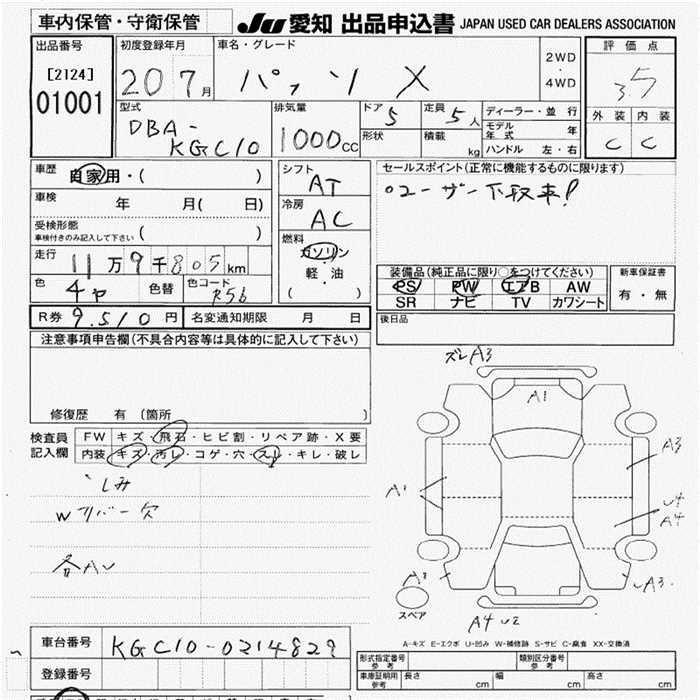 車内保管・守衛保管
JU 愛知 出品申込書 JAPAN USED CAR DEALERS ASSOCIATION
出品番号 [2124] 01001
初度登録年月 20 7月
車名・グレード パッソ X
2WD
4WD
評価点 3.5
外装 内装
C C
型式 DBA-KGC10
排気量 1000cc
ドア 5
定員 5人
形状
積載 kg
ディーラー・並行
モデル年式 年
ハンドル 左・右
車歴 自家用・( )
車検 年 月( 日)
受検形態 ( )
車検付きのみ記入して下さい
走行 11万9千805km
色 色替 色コード R56
シフト AT
冷房 AC
燃料 ガソリン・軽油
( )
セールスポイント(正常に機能するものに限ります)
○ユーザー下取車!
装備品(純正品に限り○をつけてください)
PS PW エアB AW
SR ナビ TV カワシート
新車保証書
有・無
後日品
R券 9,510円
名変通知期限 月 日
注意事項申告欄(不具合内容等は具体的に記入して下さい)
修復歴 有〔箇所 〕
検査員記入欄
FW キズ・飛石・ヒビ割・リペア跡・X要
内装 キズ・汚レ・コゲ・穴・スレ・キレ・破レ
シミ
Wリバー欠
各AU
ズレA3
A1
A3
A1
U4
A4
A3
スペア
A4 U2
A-キズ E-エクボ U-凹み W-補修跡 S-サビ C-腐食 XX-交換済
車台番号 KGC10-0214829
登録番号
形式指定番号 参考
類別区分番号 参考
車庫証明用 参考 長さ cm 幅 cm 高さ cm